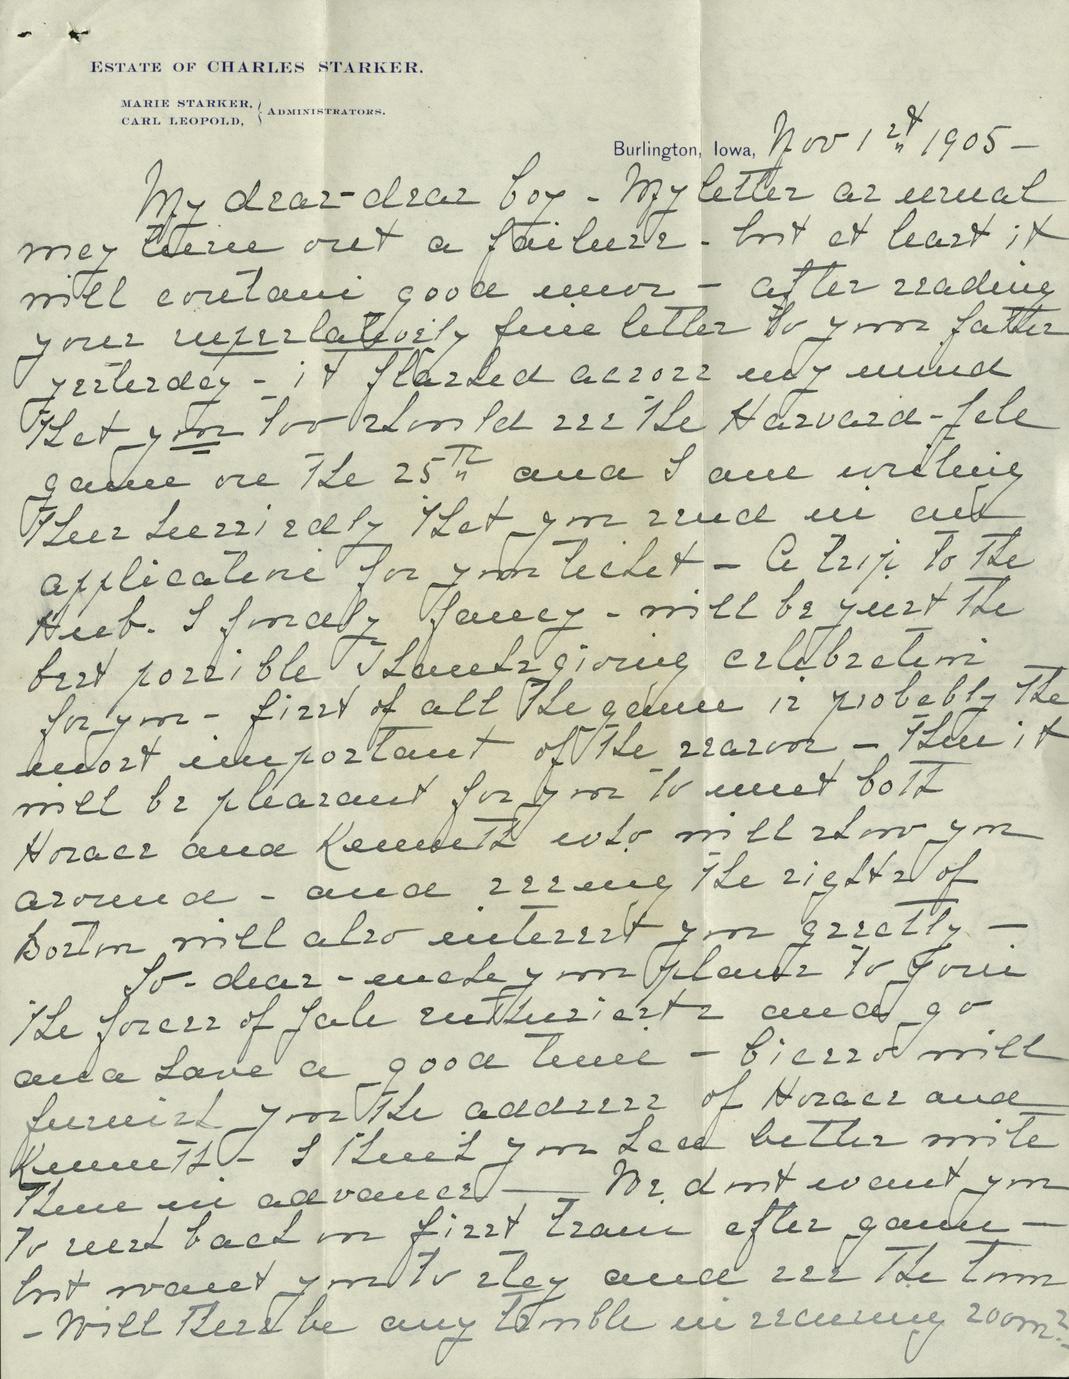 ESTATE OF CHARLES STARKER.
MARIE STARKER,
CARL LEOPOLD, } ADMINISTRATORS.
Burlington, Iowa, Nov 12th 1905 –
My dear-dear boy - My letter as usual
may turn out a failure - but at least it
will contain good news - after reading
your superlatively fine letter to your father
yesterday - it flashed across my mind
that you too should see the Harvard-Yale
game on the 25th and I am writing
thus hurriedly that you send in an
application for your ticket - A trip to the
Hub. I fondly fancy - will be just the
best possible Thanksgiving celebration
for you - first of all the game is probably the
most important of the season - then it
will be pleasant for you to meet both
Horace and Kenneth who will show you
around - and seeing the sights of
Boston will also interest you greatly -
So - dear - make your plans to join
the forces of Yale enthusiasts and go
and have a good time - will
furnish you the address of Horace and
Kenneth - I think you had better write
them in advance — We don't want you
to rush back on first train after game -
but want you to stay and see the town
- Will there be any trouble in securing room?